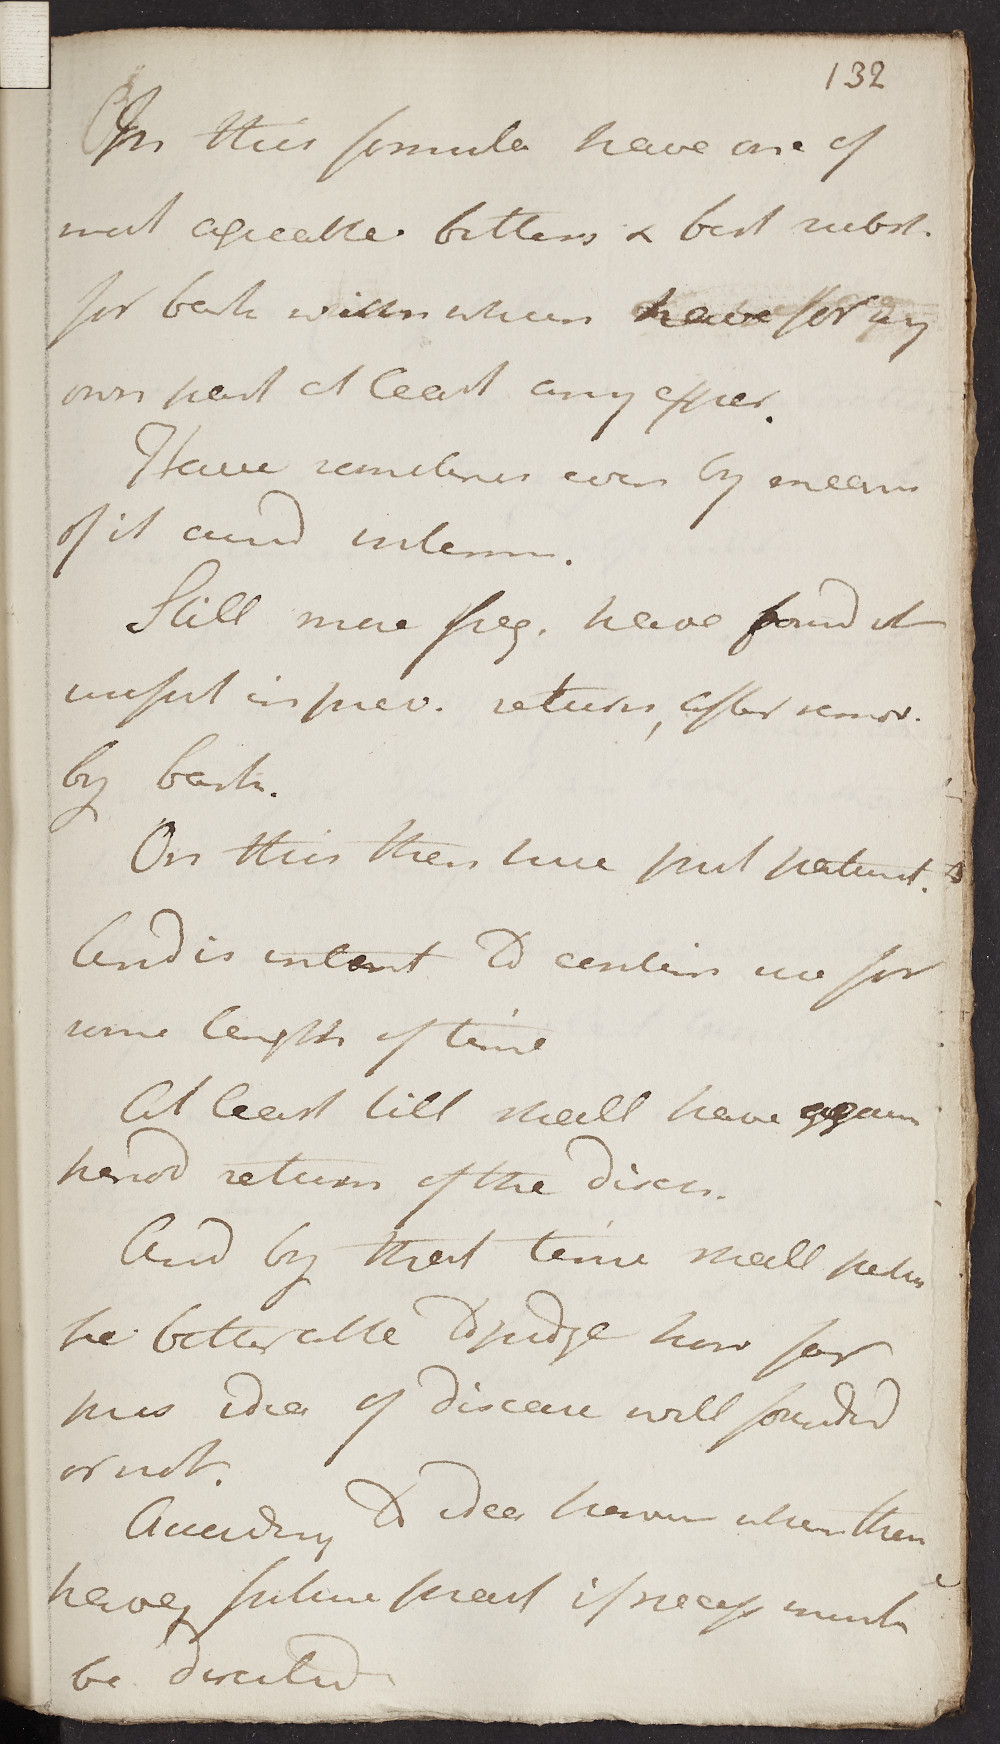 132
In this formula have one of
most agreeable bitters & best subst.
for bark with when have for my
own part at least any exper.
Have sometimes even by means
of it cured interm.
Still more freq. have found it
useful in prev. return, after remov.
by bark.
On this then have put patient.
And is intent to contin use for
some length of time
At least till shall have again
period return of the diseas.
And by that time shall perhs
be better able to judge how far
pres idea of disease well founded
or not.
According to idea however when then
have, future pract if necess must
be directed